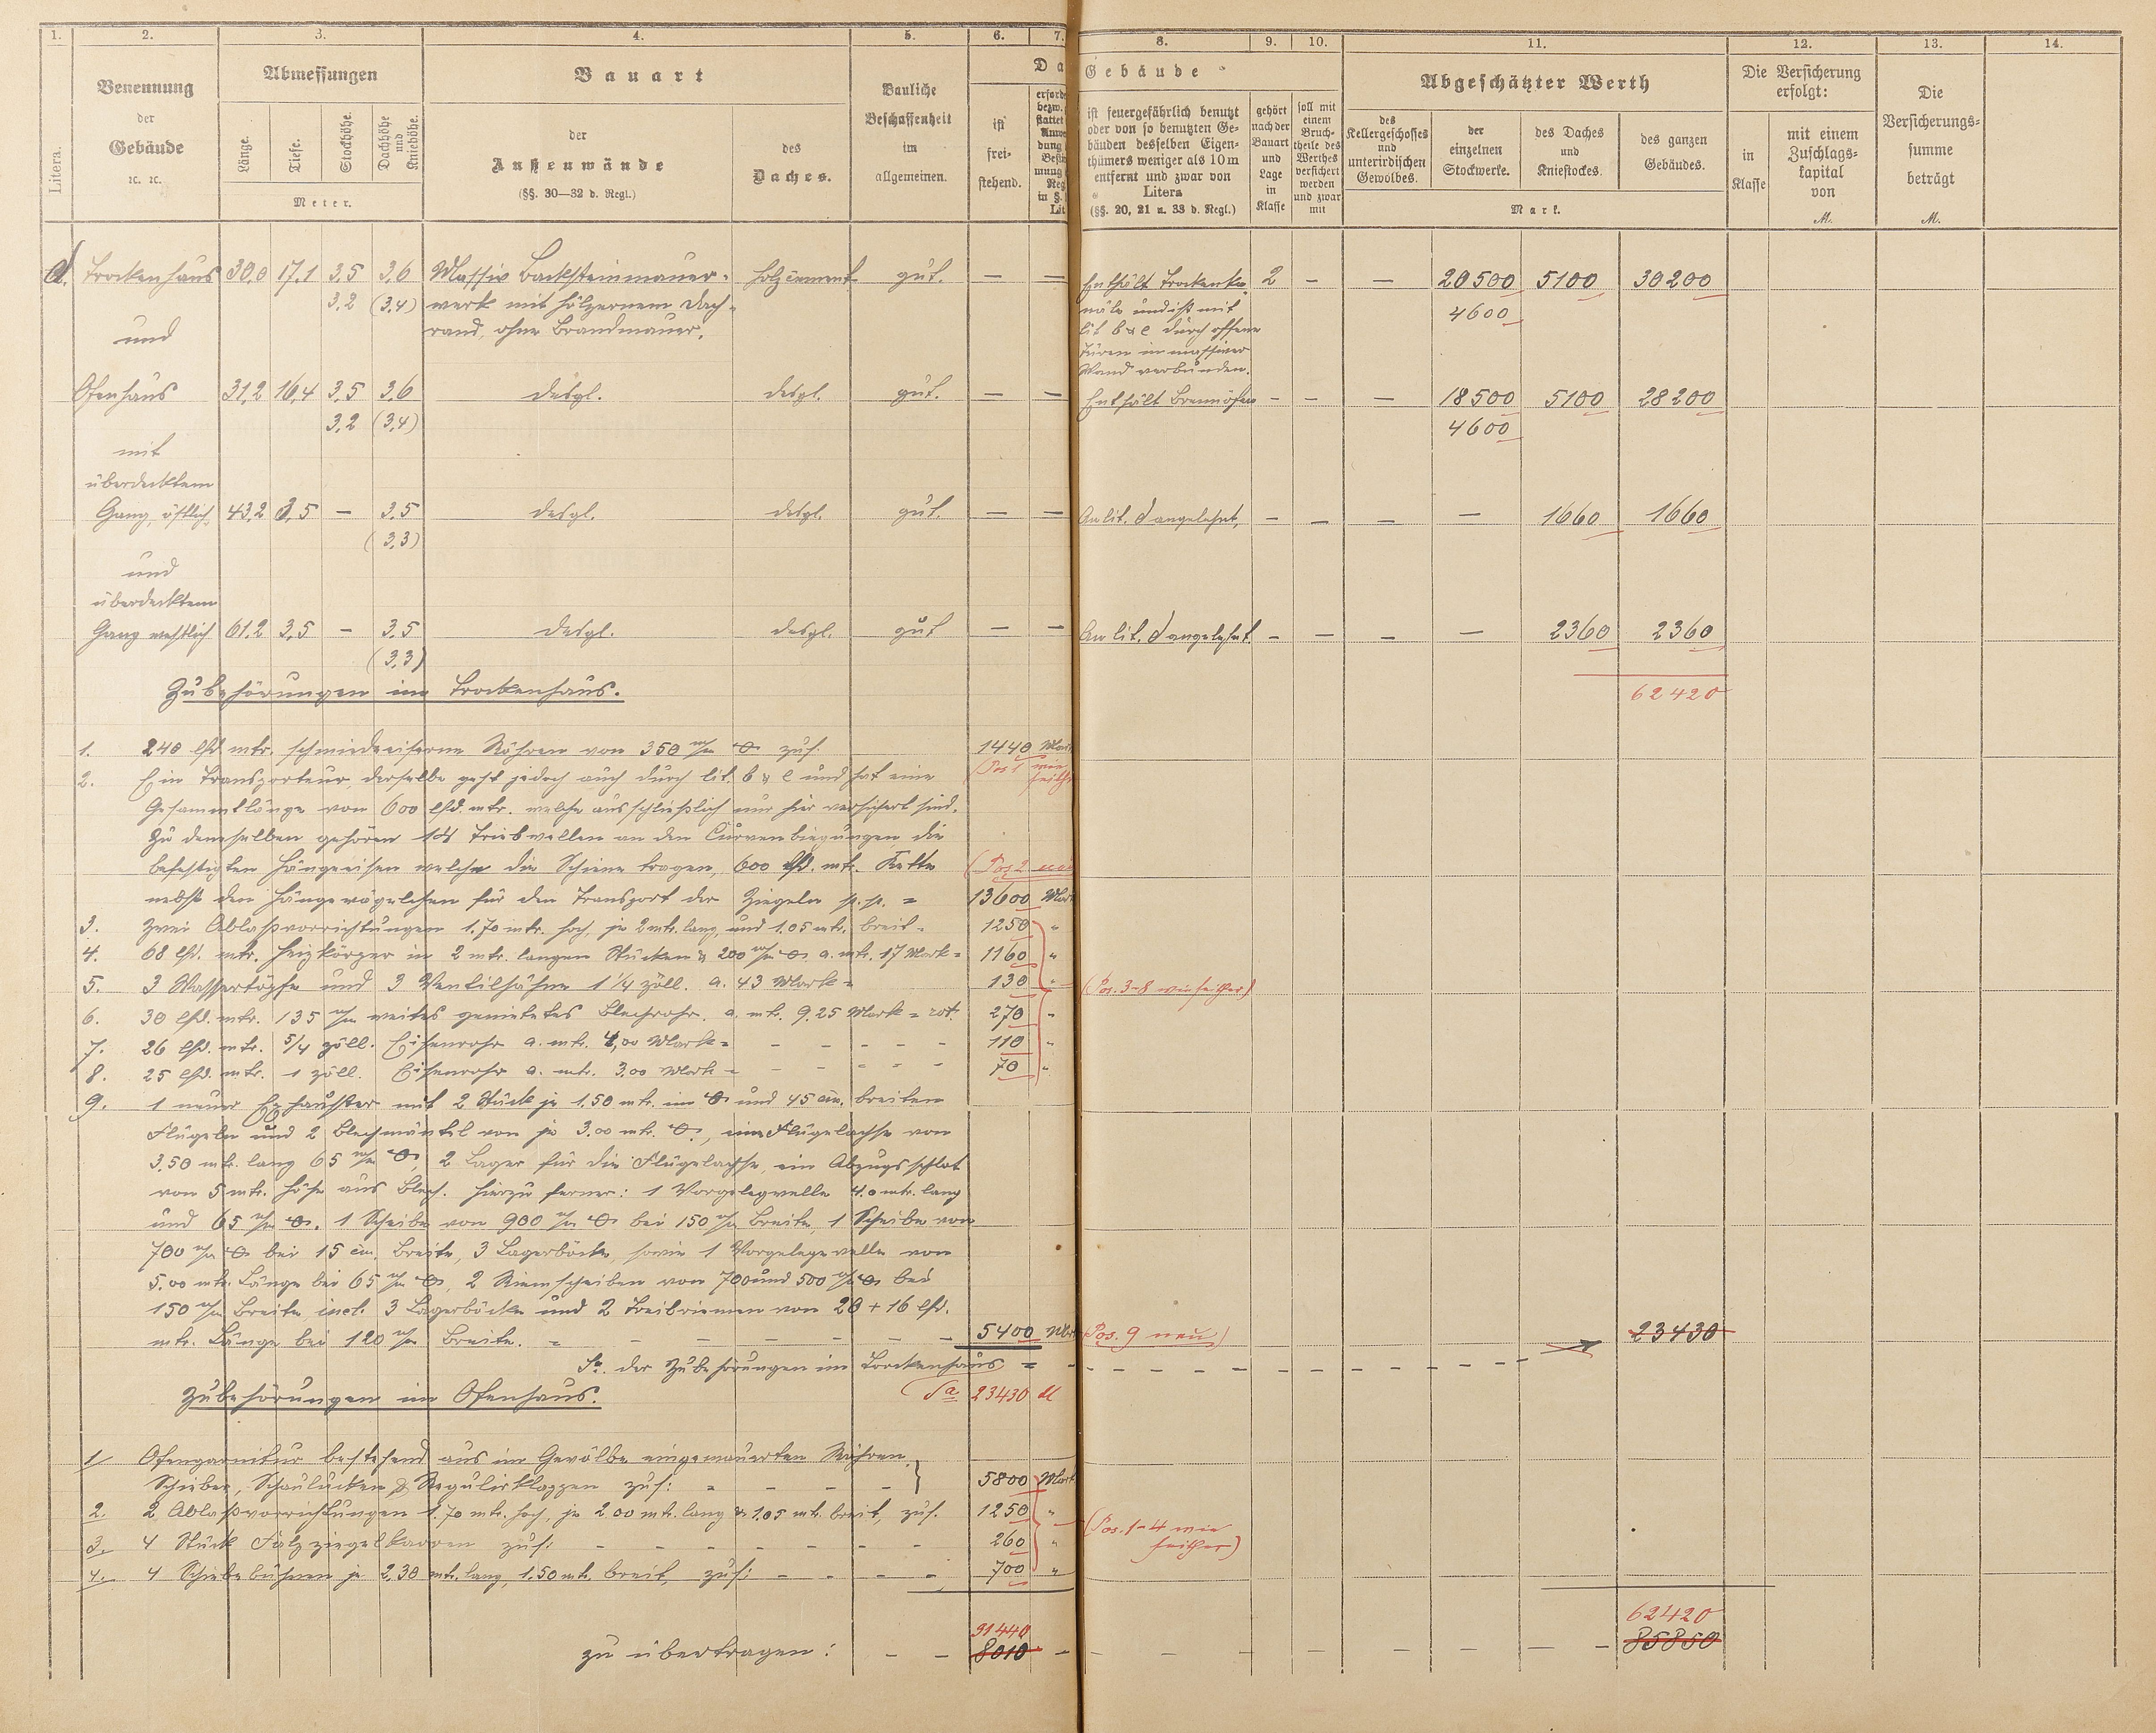 1. 2. 3. 4. 5. 6. 7. 8. 9. 10. 11. 12. 13. 14.
Litera.
Benennung
der
Gebäude
ꝛc. ꝛc.
Abmessungen
Länge. Tiefe. Stockhöhe. Dachhöhe und Kniehöhe.
Meter.
Bauart
der
Außenwände
(§§. 30—32 d. Regl.)
des
Daches.
Bauliche
Beschaffenheit
im
allgemeinen.
Da
ist
frei-
stehend.
Gebäude
ist feuergefährlich benutzt
oder von so benutzten Ge-
bäuden desselben Eigen-
thümers weniger als 10 m
entfernt und zwar von
Litera
(§§. 20, 21 u. 33 d. Regl.)
gehört
nach der
Bauart
und
Lage
in
Klasse
soll mit
einem
Bruch-
theile des
Werthes
versichert
werden
und zwar
mit
Abgeschätzter Werth
des
Kellergeschosses
und
unterirdischen
Gewölbes.
der
einzelnen
Stockwerke.
des Daches
und
Kniestockes.
des ganzen
Gebäudes.
Mark.
Die Versicherung
erfolgt:
in
Klasse
mit einem
Zuschlags-
kapital
von
M.
Die
Versicherungs-
summe
beträgt
M.
d. Trockenhaus 30,0 17,1 3,5 3,6 Massiv Backsteinmauer- Holzcement gut. — — Enthält Trockenka- 2 - — 20500 5100 30200
3,2 (3,4) werk mit hölzernem Dach- näle und ist mit 4600
und rand, ohne Brandmauer. lit b & e durch offene
Türen in massiver
Wand verbunden.
Ofenhaus 31,2 16,4 3,5 3,6 desgl. desgl. gut. — — Enthält Brennöfen - - — 18500 5100 28200
3,2 (3,4) 4600
mit
überdecktem
Gang, östlich 43,2 3,5 — 3,5 desgl. desgl. gut. — — An lit. d angelehnt, - - — — 1660 1660
(3,3)
und
überdecktem
Gang westlich 61,2 3,5 — 3,5 desgl. desgl. gut — — An lit. d angelehnt. - - — — 2360 2360
(3,3)
Zubehörungen im Trockenhaus. 62420
1. 240 lfd. mtr. schmiedeeiserne Röhren von 350 m/m ⌀ zus. 1440 Mark
(Pos 1 wie
2. Ein Transporteur, derselbe geht jedoch auch durch lit. b & e und hat eine
Gesammtlänge von 600 lfd. mtr. welche ausschließlich nur hier versichert sind.
Zu demselben gehören Triebwellen an den Curvenbiegungen, die
befestigten Hängeeisen welche die Schiene tragen, 600 lfd. mtr. Kette (Pos 2 neu
nebst den Hängewägelchen für den Transport der Ziegeln p.p. = 13600 Mark
3. Zwei Ablaßvorrichtungen 1.70 mtr. hoch, je 2 mtr. lang, und 1.05 mtr. breit = 1250 "
4. 68 lfd. mtr. Heizkörper in 2 mtr. langen Stücken & 200 m/m ⌀ a. mtr. 17 Mark = 1160 "
5. 3 Wassertöpfe und 3 Ventilhähne 1 1/4 zöll. a. 43 Mark = 130 " (Pos. 3-8 wie seither)
6. 30 lfd. mtr. 135 m/m weites genietetes Blechrohr. a. mtr. 9.25 Mark = rot. 270 "
7. 26 lfd. mtr. 5/4 zöll. Eisenrohr a. mtr. 4,00 Mark = - - - - - 110 "
8. 25 lfd. mtr. 1 zöll. Eisenrohr a. mtr. 3.00 Mark = - - - - - 70 "
9. 1 neuer Exhauster mit 2 Stück je 1.50 mtr. im ⌀ und 45 cm. breiten
Flügeln und 2 Blechmäntel von je 3.00 mtr. ⌀, eine Flügelachse von
3.50 mtr. lang 65 m/m ⌀, 2 Lager für die Flügelachse, ein Abzugsschlot
von 5 mtr. Höhe aus Blech. Hierzu ferner: 1 Vorgelegwelle 4.0 mtr. lang
und 65 m/m ⌀. 1 Scheibe von 900 m/m ⌀ bei 150 m/m Breite, 1 Scheibe von
700 m/m ⌀ bei 15 cm Breite, 3 Lagerböcke, sowie 1 Vorgelegewelle von
5.00 mtr. Länge bei 65 m/m ⌀, 2 Riemscheiben von 700 und 500 m/m ⌀ bei
150 m/m Breite incl. 3 Lagerböcke und 2 Treibriemen von 20 + 16 lfd.
mtr. Länge bei 120 m/m Breite. = - - - - - 5400 Mark (Pos. 9 neu) 23430
Sa. der Zubehörungen im Trockenhaus =
Zubehörungen im Ofenhaus. Sa 23430 M
1. Ofengarnitur bestehend aus im Gewölbe eingemauerten Röhren,
Schieber, Schaulucken & Regulirklappen zus: - - - - 5800 Mark
2. 2 Ablaßvorrichtungen 1.70 mtr. hoch, je 2.00 mtr. lang & 1.05 mtr. breit, zus. 1250 " (Pos. 1-4 wie
3. 4 Stück Falzziegelkarren zus: - - - - - - - 260 " seither)
4. 4 Schiebebühnen je 2.30 mtr. lang, 1.50 mtr. breit, zus: - - - - 700 "
31440 62420
zu übertragen: - - 8010 - - - - - - 85850